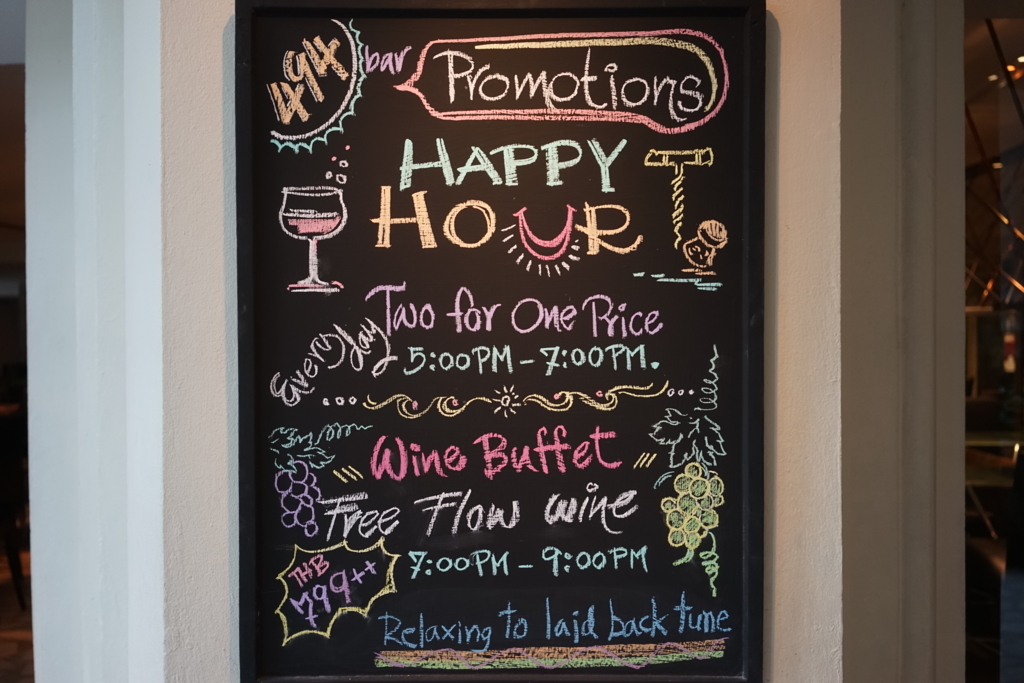 494 bar
Promotions
HAPPY
HOUR
Every Day
Two for One Price
5:00PM - 7:00PM.
Wine Buffet
Free Flow wine
THB
799++
7:00PM - 9:00PM
Relaxing to laid back tune